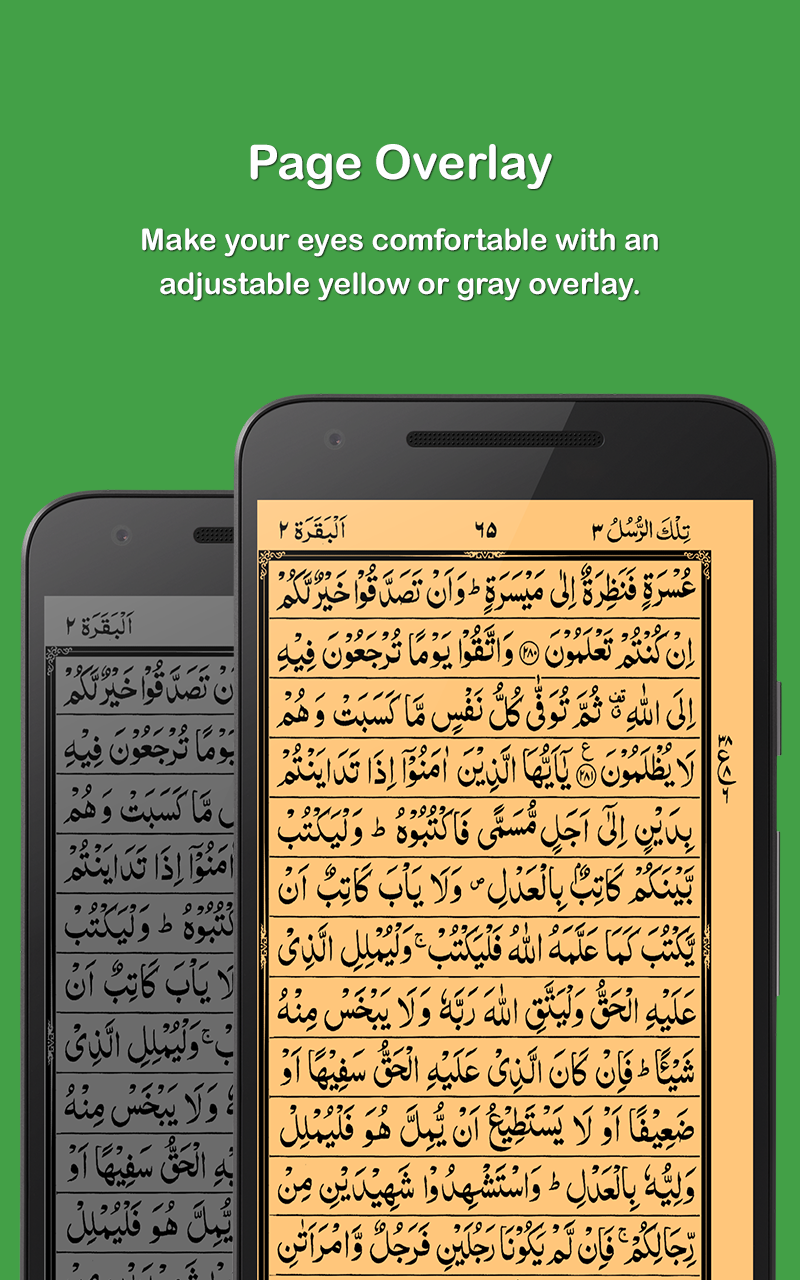 Page Overlay
Make your eyes comfortable with an
adjustable yellow or gray overlay.
تِلْكَ الرُّسُلُ ٣
٦٥
اَلْبَقَرَة ٢
عُسْرَةٍ فَنَظِرَةٌ اِلٰى مَيْسَرَةٍ ؕ وَاَنْ تَصَدَّقُوْا خَيْرٌ لَّكُمْ
اِنْ كُنْتُمْ تَعْلَمُوْنَ ﴿٢٨٠﴾ وَاتَّقُوْا يَوْمًا تُرْجَعُوْنَ فِيْهِ
اِلَى اللّٰهِ ۫ ثُمَّ تُوَفّٰى كُلُّ نَفْسٍ مَّا كَسَبَتْ وَ هُمْ
لَا يُظْلَمُوْنَ ﴿٢٨١﴾ ع يٰۤاَيُّهَا الَّذِيْنَ اٰمَنُوْۤا اِذَا تَدَايَنْتُمْ
بِدَيْنٍ اِلٰۤى اَجَلٍ مُّسَمًّى فَاكْتُبُوْهُ ؕ وَلْيَكْتُبْ
بَّيْنَكُمْ كَاتِبٌۢ بِالْعَدْلِ ۪ وَلَا يَاْبَ كَاتِبٌ اَنْ
يَّكْتُبَ كَمَا عَلَّمَهُ اللّٰهُ فَلْيَكْتُبْ ۚ وَلْيُمْلِلِ الَّذِىْ
عَلَيْهِ الْحَقُّ وَلْيَتَّقِ اللّٰهَ رَبَّهٗ وَلَا يَبْخَسْ مِنْهُ
شَيْـًٔا ؕ فَاِنْ كَانَ الَّذِىْ عَلَيْهِ الْحَقُّ سَفِيْهًا اَوْ
ضَعِيْفًا اَوْ لَا يَسْتَطِيْعُ اَنْ يُّمِلَّ هُوَ فَلْيُمْلِلْ
وَلِيُّهٗ بِالْعَدْلِ ؕ وَاسْتَشْهِدُوْا شَهِيْدَيْنِ مِنْ
رِّجَالِكُمْ ۚ فَاِنْ لَّمْ يَكُوْنَا رَجُلَيْنِ فَرَجُلٌ وَّامْرَاَتٰنِ
٣٨
ع ٨
٦
اَلْبَقَرَة ٢
تَصَدَّقُوْا خَيْرٌ لَّكُمْ
يَوْمًا تُرْجَعُوْنَ فِيْهِ
مَّا كَسَبَتْ وَ هُمْ
اٰمَنُوْۤا اِذَا تَدَايَنْتُمْ
ؕ وَلْيَكْتُبْ
لَا يَاْبَ كَاتِبٌ اَنْ
ۚ وَلْيُمْلِلِ الَّذِىْ
وَلَا يَبْخَسْ مِنْهُ
الْحَقُّ سَفِيْهًا اَوْ
يُّمِلَّ هُوَ فَلْيُمْلِلْ